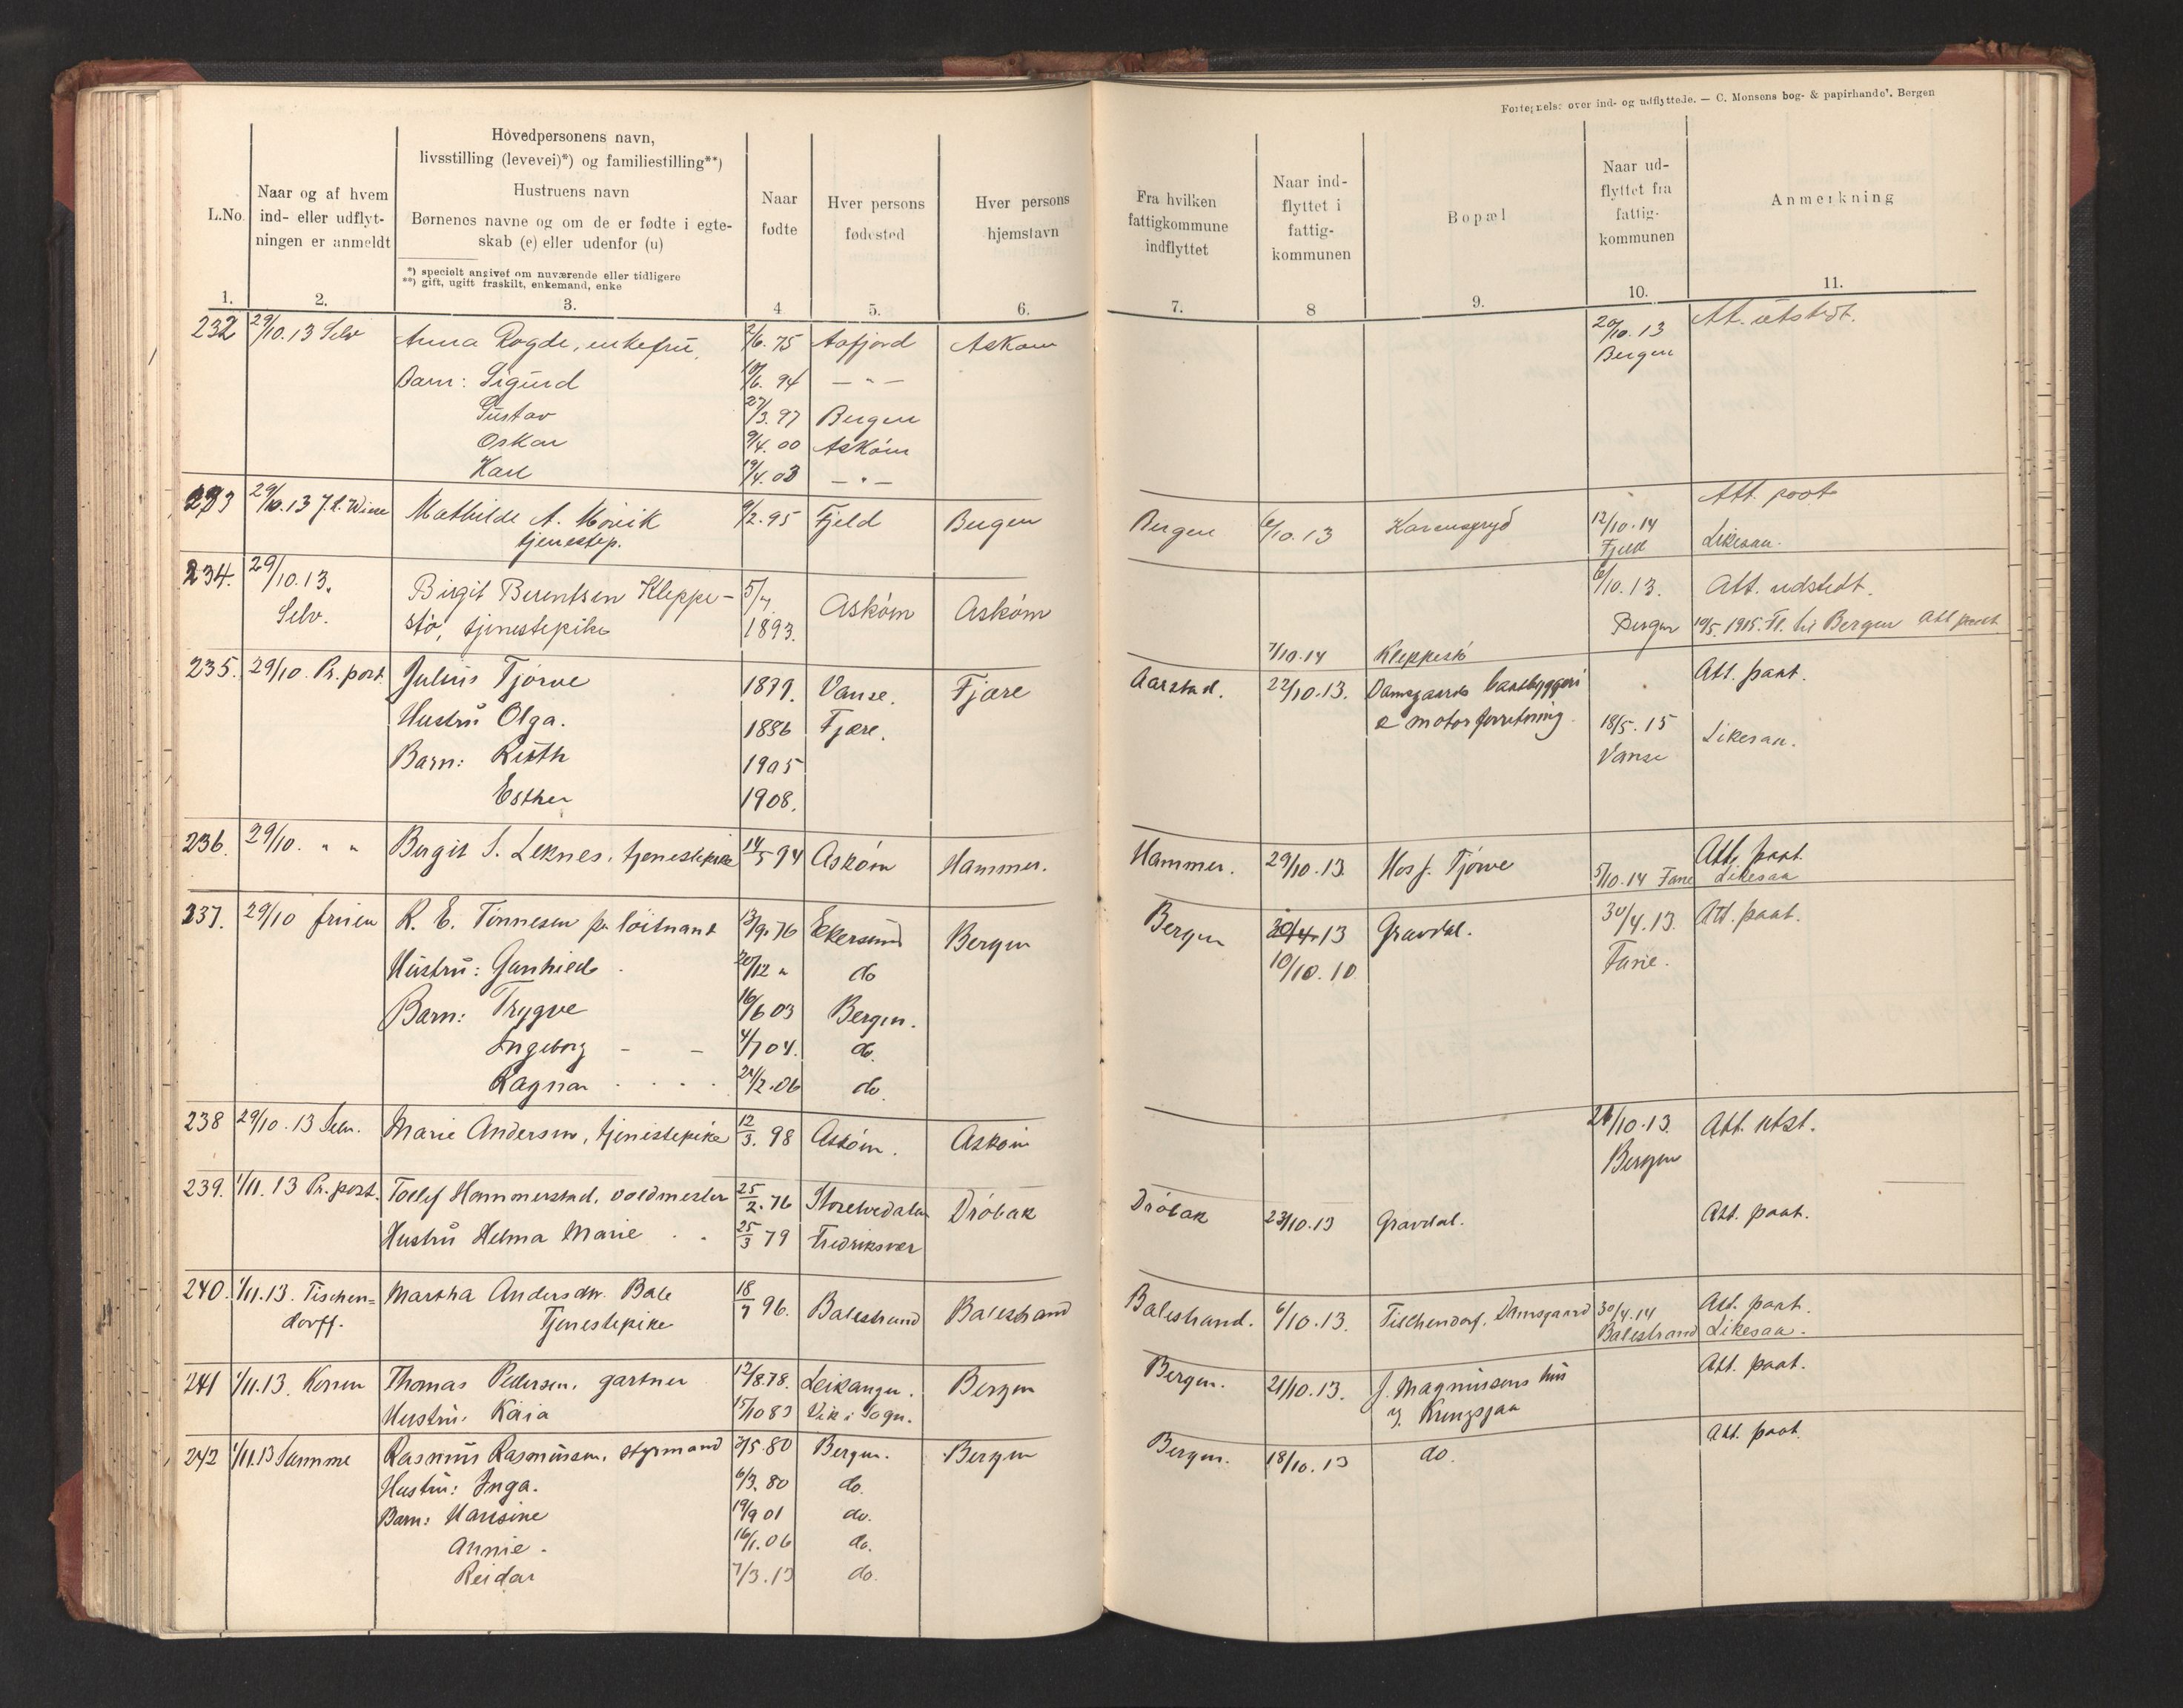 Fortegnelse over ind- og udflyttede. — C. Monsens bog- & papirhandel, Bergen
L.No.
Naar og af hvem
ind- eller udflyt-
ningen er anmeldt
Hovedpersonens navn,
livsstilling (levevei)*) og familiestilling**)
Hustruens navn
Børnenes navne og om de er fødte i egte-
skab (e) eller udenfor (u)
*) specielt angivet om nuværende eller tidligere
**) gift, ugift fraskilt, enkemand, enke
Naar
fødte
Hver persons
fødested
Hver persons
hjemstavn
Fra hvilken
fattigkommune
indflyttet
Naar ind-
flyttet i
fattig-
kommunen
Bopæl
Naar ud-
flyttet fra
fattig-
kommunen
Anmerkning
1. 2. 3. 4 5. 6. 7. 8 9. 10. 11.
232 29/10.13 Selv Anna Rogde, enkefru, 2/6.75 Aafjord Askøen 20/10.13 Att. utstedt.
Bergen
Barn: Sigurd 10/6.94 — " —
Gustav 27/3.97 Bergen
Oskar 9/4.00 Askøen
Karl 19/4.03 — " —
233 29/10.13 Mathilde A. Morvik 9/2.95 Fjeld Bergen Bergen 6/10.13 12/10.14 Att. paat
tjenestep. Fjeld Likesaa.
234. 29/10.13. Birgit Berentsen Kleppe- 5/7. Askøen Askøen 6/10.13. Att. udstedt.
Selv. stø, tjenestepike 1893. Bergen 19/5.1915. Fl. til Bergen Att paat
7/10.14 Kleppestø
235. 29/10 Pr. post. Julius Tjørve 1879. Vanse. Fjære Aarstad. 22/10.13. Damsgaards baatbyggeri Att. paat.
Hustru Olga. 1886 Fjære. & motorforretning. 18/5.15 Likesaa.
Barn: Ruth 1905 Vanse
Esther 1908.
236. 29/10. " " Bergit S. Leknes, tjenestepike 14/5 94 Askøen Hammer. Hammer. 29/10.13. Hos J. Tjørve Att. paat.
5/10.14 Fane Likesaa
237. 29/10 fruen R. E. Tønnesen pr. løitnant 13/9.76 Ekersund Bergen Bergen 30/4.13 Gravdal. 30/4.13. Att. paat.
Hustru: Gunhild 20/12 " do 10/10.10 Fane.
Barn: Trygve 16/6 03 Bergen.
Ingeborg - - 4/7 04. do.
Ragnar . . . . 21/2.06 do.
238 29/10.13 Selv. Marie Andersen, tjenestepike 12/3. 98 Askøen. Askøen 21/10.13. Att. utst.
Bergen
239. 1/11.13 Pr. post. Tollef Hammerstad, voldmester 25/2.76 Drøbak Drøbak 23/10.13 Gravdal. Att. paat.
Hustru Helma Marie . . 25/3 79 Fredriksver
240. 1/11.13. Tischen= Martha Andersdtr. Bale 18/7 96. Balestrand Balestrand Balestrand. 6/10.13. Tischendorf, Damsgaard 30/4.14 Att. paat.
dorff. Tjenestepike Balestrand Likesaa.
241 1/11.13. Konen Thomas Pedersen, gartner 12/8.78. Leikanger. Bergen Bergen. 21/10.13. J. Magnussens hus Att. paat.
Hustru: Kaia 15/10 83 Vik i Sogn.
242 1/11.13 Samme Rasmus Rasmussen, styrmand 3/5.80 Bergen. Bergen Bergen. 18/10.13 do. Att. paat.
Hustru: Inga. 6/3.80 do.
Barn: Marsine 19/9 01 do.
Annie. 16/1.06 do.
Reidar 7/3.13 do.